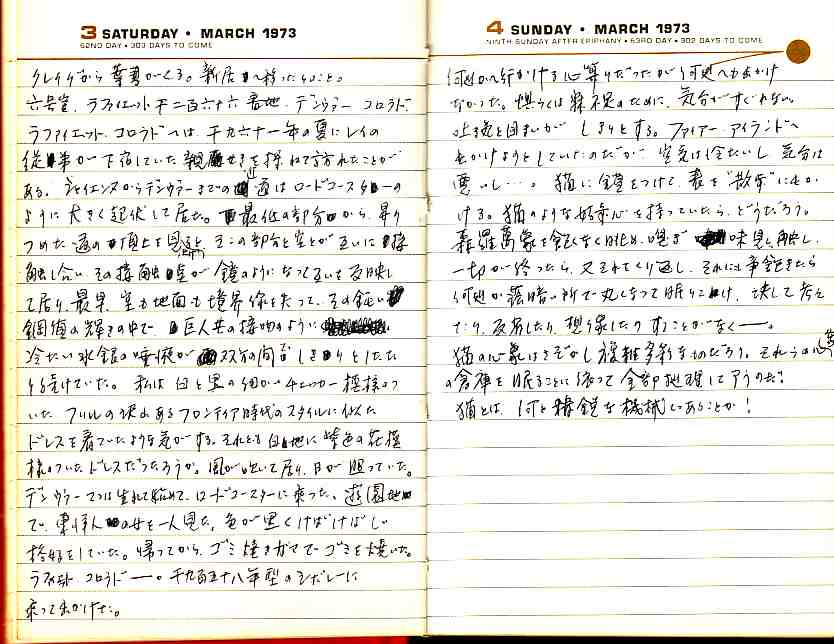 3 SATURDAY • MARCH 1973
62ND DAY • 303 DAYS TO COME
クレイグから葉書がくる。新居へ移ったとのこと。
六号室、ラファイエット 千二百六十六番地・デンヴァー コロラド
ラファイエット・コロラドへは、千九六十一年の夏にレイの
従事が下宿していた を探ねて訪れたことが
ある。シャイエンヌからデンヴァーまでの道はロードコースターの
ように大きく起伏して居た。最低の部分から、昇り
つめた道の頂上を見ると その部分と空とが互いに接
触し合い その接触 が鏡のようになって互いを反映し
て居り、最早、空も地面も境界線を失って、その鈍い
鋼価の輝きの中で、巨人共の接吻のように
冷たい水銀の唾液が双方の間をしきりとしたた
り続けていた。私は白と黒の細かいチェッカー模様のつ
いた フリルの沢山あるフロンティア時代のスタイルに似た
ドレスを着ていたような気がする。それとも白地に紫色の花模
様のついたドレスだったろうか。風が吹いて居り、日が照っていた。
デンヴァーでは生れて始めて、ロードコースターに乗った。遊園地
で、東洋人の女を一人見た。色が黒くけばけばしい
格好をしていた。帰ってから、ゴミ焼きガマでゴミを焼いた。
ラファイエット・コロラドー。千九百五十八年型のシボレーに
乗って出かけた。
4 SUNDAY • MARCH 1973
NINTH SUNDAY AFTER EPIPHANY • 63RD DAY • 302 DAYS TO COME
何処かへ行かける心算りだったが何処へも出かけ
なかった。恐らくは寐不足のために、気分がすぐれない。
吐き気と目まいがしきりとする。ファイアー・アイランドへ
出かけようとしていたのだが 空気は冷たいし、気分は
悪いし…。猫に鎖をつけて、表を"散歩"に出か
ける。猫のような好奇心を持っていたら、どうだろう。
森羅萬象を飽くなく眺め、嗅ぎ 味見し、触し、
一切が終ったら、又それをくり返し、それにも飽きたら
何処か薄暗い所で丸くなって眠りこけ、決して考え
たり、反省したり、想像したりすることがなく―。
猫の心象はさぞかし複雑多彩なものだろう。それらの心象
の倉庫を眠ることに依って全部処理して了うのだ!
猫とは、何と精鋭な機械であることか!